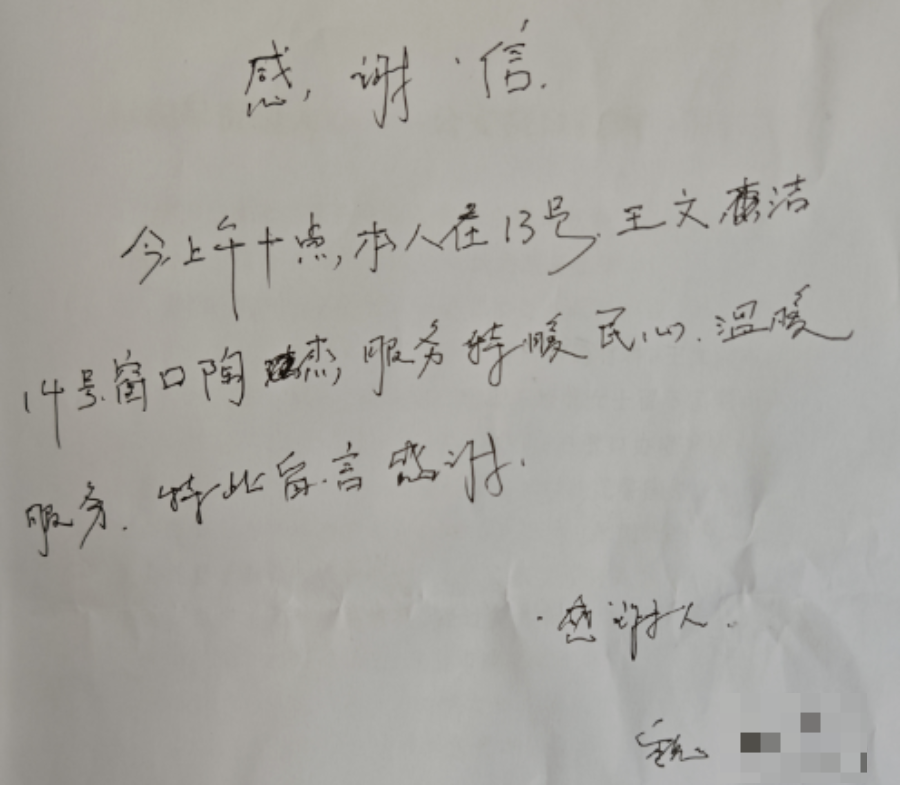 感谢信.
今上午十点,本人在13号.王文洁
14号窗口陶杰,服务特暖民心.温暖
服务.特此留言感谢.
感谢人.